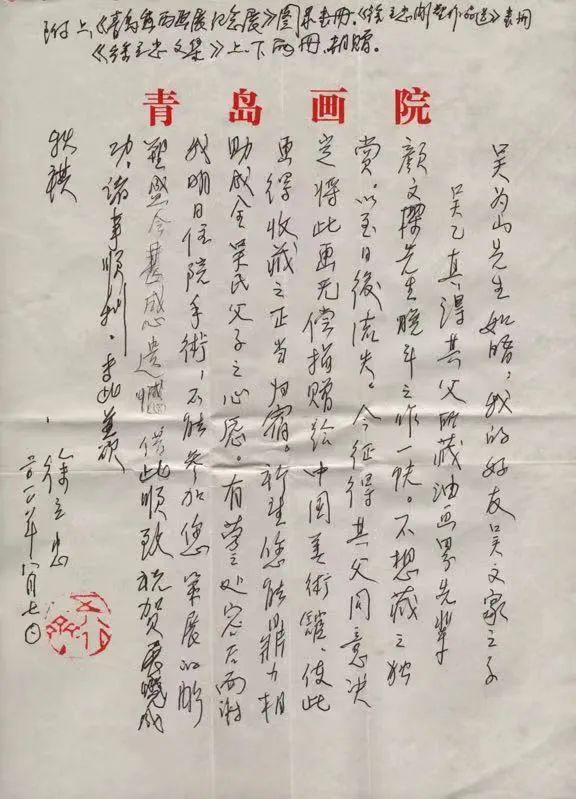 附上《青岛 西画展纪念展》图录壹册、《徐立忠雕塑作品选》壹册
《徐立忠文集》上下两册、 赠。
青岛画院
吴为山先生如晤，我的好友吴文家之子
吴乙真，得其父所藏油画界先辈
颜文樑先生晚年之作一帧。不想藏之独
赏，以至日後流失。今征得其父同意决
定将此画无偿捐赠给中国美术馆、使此
画得收藏之正当归宿。祈望您能鼎力相
助成全吴氏父子之心愿。有劳之处容后面谢
我明日住院手術，不能参加您策展的雕
塑盛会甚感遗憾 借此顺致祝贺展览成
功，诸事顺利。专此并颂
秋祺
徐立忠
年八月七日